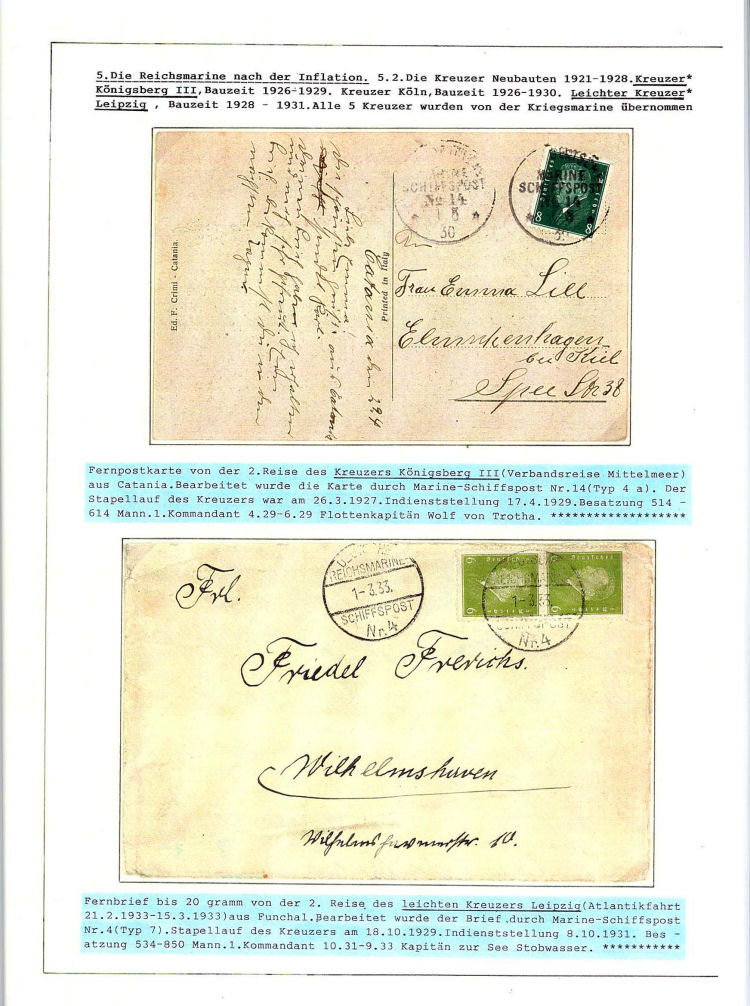 5.Die Reichsmarine nach der Inflation. 5.2.Die Kreuzer Neubauten 1921-1928.Kreuzer*
Königsberg III,Bauzeit 1926-1929. Kreuzer Köln,Bauzeit 1926-1930. Leichter Kreuzer*
Leipzig , Bauzeit 1928 - 1931.Alle 5 Kreuzer wurden von der Kriegsmarine übernommen
Ed. F. Crimi - Catania.
Catania den 29 4
Liebe Emma!
Printed in Italy
MARINE
SCHIFFSPOST
No 14
* 1 5 *
30
MARINE
SCHIFFSPOST
No 14
8 8
An
Frau Emma Lill
Elmschenhagen
bei Kiel
Spee Str 38
Fernpostkarte von der 2.Reise des Kreuzers Königsberg III(Verbandsreise Mittelmeer)
aus Catania.Bearbeitet wurde die Karte durch Marine-Schiffspost Nr.14(Typ 4 a). Der
Stapellauf des Kreuzers war am 26.3.1927.Indienststellung 17.4.1929.Besatzung 514 -
614 Mann.1.Kommandant 4.29-6.29 Flottenkapitän Wolf von Trotha. *******************
REICHSMARINE-
1-3.33.
SCHIFFSPOST
Nr.4
1-3.33
SCHIFFSPOST
Nr.4
Frl.
Friedel Frerichs.
Wilhelmshaven
Wilhelmshavenerstr. 60.
Fernbrief bis 20 gramm von der 2. Reise des leichten Kreuzers Leipzig(Atlantikfahrt
21.2.1933-15.3.1933)aus Funchal.Bearbeitet wurde der Brief durch Marine-Schiffspost
Nr.4(Typ 7).Stapellauf des Kreuzers am 18.10.1929.Indienststellung 8.10.1931. Bes -
atzung 534-850 Mann.1.Kommandant 10.31-9.33 Kapitän zur See Stobwasser. ***********